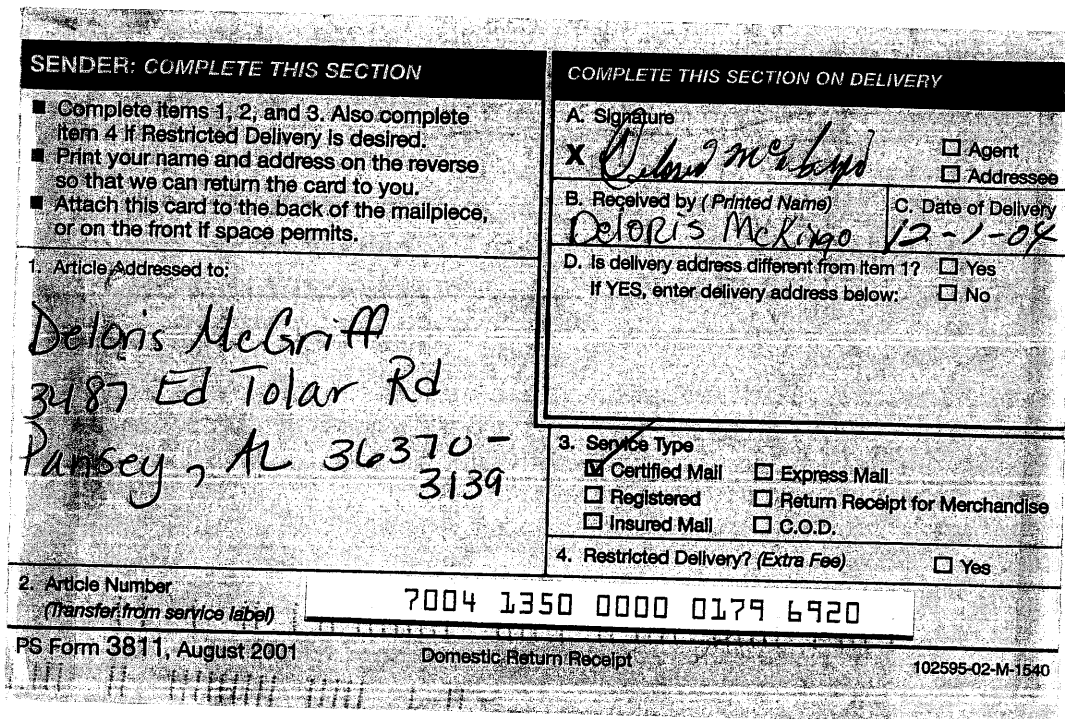 SENDER: COMPLETE THIS SECTION
■ Complete items 1, 2, and 3. Also complete
item 4 if Restricted Delivery is desired.
■ Print your name and address on the reverse
so that we can return the card to you.
■ Attach this card to the back of the mailpiece,
or on the front if space permits.
1. Article Addressed to:
Deloris McGriff
3487 Ed Tolar Rd
Pansey, AL 36370-
3139
2. Article Number
(Transfer from service label)
7004 1350 0000 0179 6920
COMPLETE THIS SECTION ON DELIVERY
A. Signature
X
☐ Agent
☐ Addressee
B. Received by (Printed Name)
C. Date of Delivery
Deloris 12-1-04
D. Is delivery address different from item 1? ☐ Yes
If YES, enter delivery address below: ☐ No
3. Service Type
☑ Certified Mail ☐ Express Mail
☐ Registered ☐ Return Receipt for Merchandise
☐ Insured Mail ☐ C.O.D.
4. Restricted Delivery? (Extra Fee) ☐ Yes
PS Form 3811, August 2001 Domestic Return Receipt 102595-02-M-1540